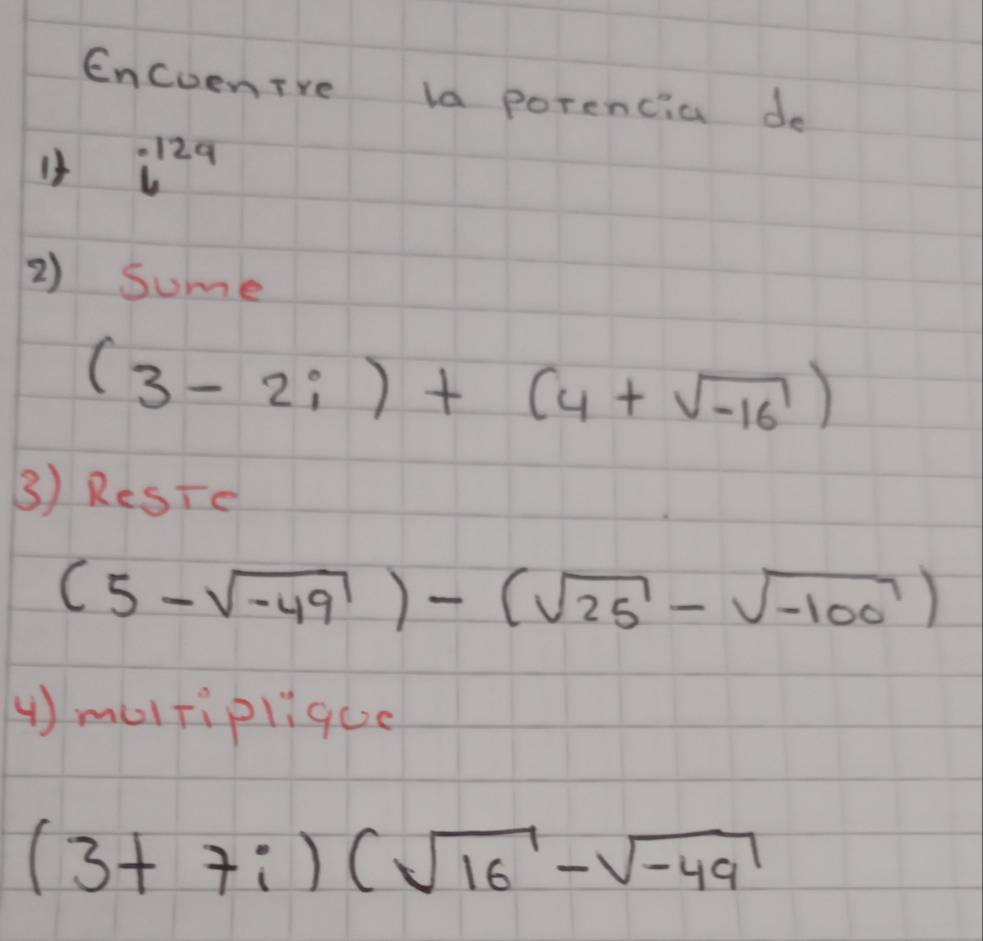 Encuentre la potencia de
1) i¹²⁹
2) Sume
(3 - 2i) + (4 + √-16)
3) Reste
(5 - √-49) - (√25 - √-100)
4) multiplique
(3 + 7i)(√16 - √-49